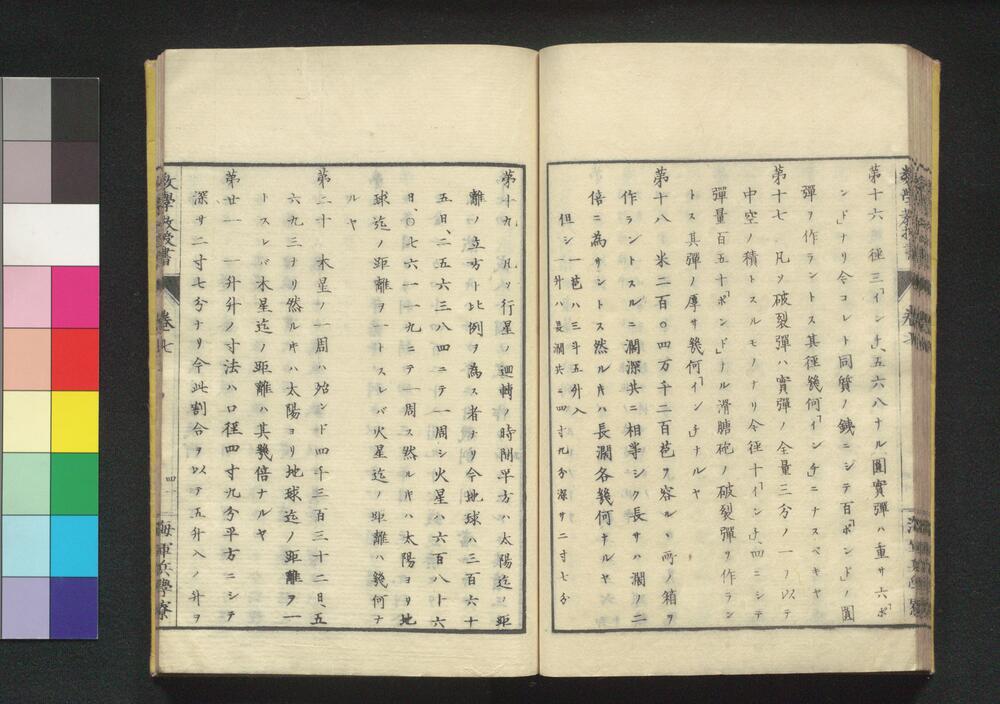 第十六 徑三「インチ」五六八ナル圓實彈ハ重サ六「ポ
ンド」ナリ今コレト同質ノ銕ニシテ百「ポンド」ノ圓
彈ヲ作ラントス其徑幾何「インチ」ニナスベキヤ
第十七 凡ソ破裂彈ハ實彈ノ全量三分ノ一ヲ以テ
中空ノ積トスルモノナリ今徑十「インチ」四ニシテ
彈量百五十「ポンド」ナル滑膅砲ノ破裂彈ヲ作ラン
トス其彈ノ厚サ幾何「インチ」ナルヤ
第十八 米二百〇四万千二百苞ヲ容ルヽ所ノ箱ヲ
作ラントスルニ濶深共ニ相等シク長サハ濶ノ二
倍ニ為サントス然ル片ハ長濶各幾何ナルヤ
但シ一苞ハ三斗五升入
一升ハ長濶共ニ四寸九分深サ二寸七分
第十九 凡ソ行星ノ迴轉ノ時間平方ハ太陽迄ノ距
離ノ立方ト比例ヲ為ス者ナリ今地球ハ三百六十
五日、二五六三八四ニテ一周シ火星ハ六百八十六
日〇七六一一九ニテ一周ス然ル片ハ太陽ヨリ地
球迄ノ距離ヲ一トスレバ火星迄ノ距離ハ幾何ナ
ルヤ
第二十 木星ノ一周ハ殆ンド四千三百三十二日、五
六九三ナリ然ル片ハ太陽ヨリ地球迄ノ距離ヲ一
トスレバ木星迄ノ距離ハ其幾倍ナルヤ
第廿一 一升升ノ寸法ハ口徑四寸九分平方ニシテ
深サ二寸七分ナリ今此割合ヲ以テ五升入ノ升ヲ
數學教授書
卷七
四
海軍兵學寮